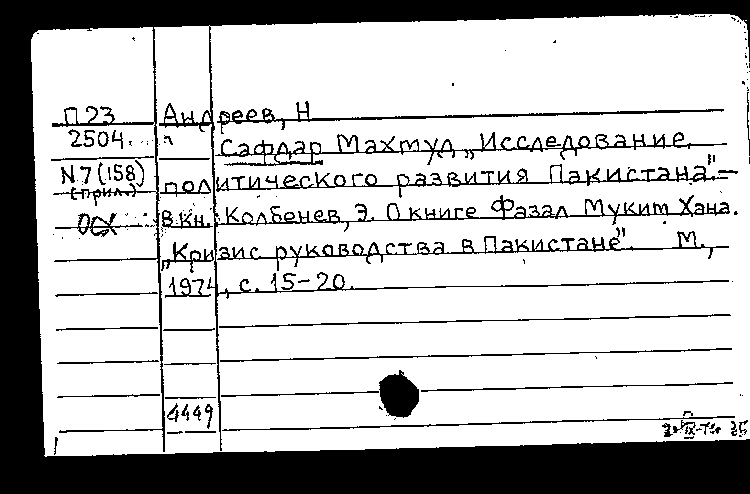 П23 Андреев, Н
2504 Сафдар Махмуд „Исследование
N7(158) политического развития Пакистана".—
(прил.)
В кн.: Колбенев, Э. О книге Фазал Муким Хана.
„Кризис руководства в Пакистане". М.,
1974, с. 15-20.
4449